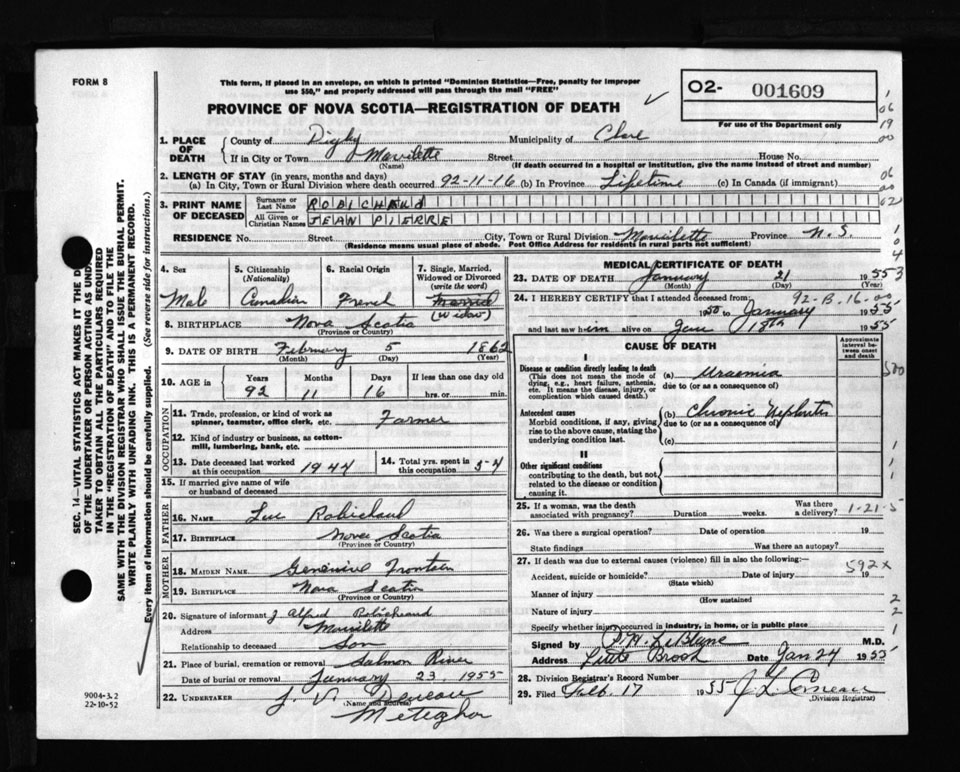 FORM 8
This form, if placed in an envelope, on which is printed "Dominion Statistics—Free, penalty for improper
use $50," and properly addressed will pass through the mail "FREE"
PROVINCE OF NOVA SCOTIA—REGISTRATION OF DEATH
O2- 001609
For use of the Department only
1. PLACE OF DEATH County of Digby Municipality of Clare
If in City or Town Mavilette Street House No.
(Name) (If death occurred in a hospital or institution, give the name instead of street and number)
2. LENGTH OF STAY (in years, months and days)
(a) In City, Town or Rural Division where death occurred 92-11-16 (b) In Province Lifetime (c) In Canada (if immigrant)
3. PRINT NAME OF DECEASED Surname or Last Name ROBICHAUD
All Given or Christian Names JEAN PIERRE
RESIDENCE No. Street City, Town or Rural Division Mavilette Province N.S.
(Residence means usual place of abode. Post Office Address for residents in rural parts not sufficient)
4. Sex 5. Citizenship (Nationality) 6. Racial Origin 7. Single, Married, Widowed or Divorced (write the word)
Male Canadian French Married
(Widow)
8. BIRTHPLACE Nova Scotia
(Province or Country)
9. DATE OF BIRTH February 5 1862
(Month) (Day) (Year)
10. AGE in Years Months Days If less than one day old
92 11 16 hrs. or min.
OCCUPATION
11. Trade, profession, or kind of work as spinner, teamster, office clerk, etc. Farmer
12. Kind of industry or business, as cotton-mill, lumbering, bank, etc.
13. Date deceased last worked at this occupation 1944 14. Total yrs. spent in this occupation 54
15. If married give name of wife or husband of deceased
FATHER
16. NAME Luc Robichaud
17. BIRTHPLACE Nova Scotia
(Province or Country)
MOTHER
18. MAIDEN NAME
19. BIRTHPLACE Nova Scotia
(Province or Country)
20. Signature of informant J Alfred Robichaud
Address Mavilette
Relationship to deceased Son
21. Place of burial, cremation or removal Salmon River
Date of burial or removal January 23, 1955
22. UNDERTAKER J. V. Deveau
(Name and address)
Meteghan
MEDICAL CERTIFICATE OF DEATH
23. DATE OF DEATH January 21 1955
(Month) (Day)
24. I HEREBY CERTIFY that I attended deceased from:
92-B.16-00
1950 to January 1955
and last saw him alive on Jan 18th 1955
CAUSE OF DEATH
Approximate interval between onset and death
I
Disease or condition directly leading to death (a) Uraemia
(This does not mean the mode of dying, e.g., heart failure, asthenia, etc. It means the disease, injury, or complication which caused death.)
due to (or as a consequence of)
Antecedent causes (b) Chronic Nephritis
Morbid conditions, if any, giving rise to the above cause, stating the underlying condition last.
due to (or as a consequence of)
(c)
II
Other significant conditions
contributing to the death, but not related to the disease or condition causing it.
25. If a woman, was the death associated with pregnancy? Duration weeks. Was there a delivery? 1-21-5
26. Was there a surgical operation? Date of operation 19
State findings Was there an autopsy?
27. If death was due to external causes (violence) fill in also the following:
592x
Accident, suicide or homicide? Date of injury 19
(State which)
Manner of injury
(How sustained
Nature of injury
Specify whether injury occurred in industry, in home, or in public place
Signed by P.H. LeBlanc M.D.
Address Little Brook Date Jan 24 1955
28. Division Registrar's Record Number
29. Filed Feb. 17 1955 J L Comeau
(Division Registrar)
SEC. 14—VITAL STATISTICS ACT MAKES IT THE
OF THE UNDERTAKER OR PERSON ACTING AS
TAKER TO OBTAIN ALL THE PARTICULARS REQUIRED
IN THE "REGISTRATION OF DEATH" AND TO FILE THE
SAME WITH THE DIVISION REGISTRAR WHO SHALL ISSUE THE BURIAL PERMIT.
WRITE PLAINLY WITH UNFADING INK. THIS IS A PERMANENT RECORD.
Every item of information should be carefully supplied. (See reverse side for instructions.)
9004-3.2
22-10-52